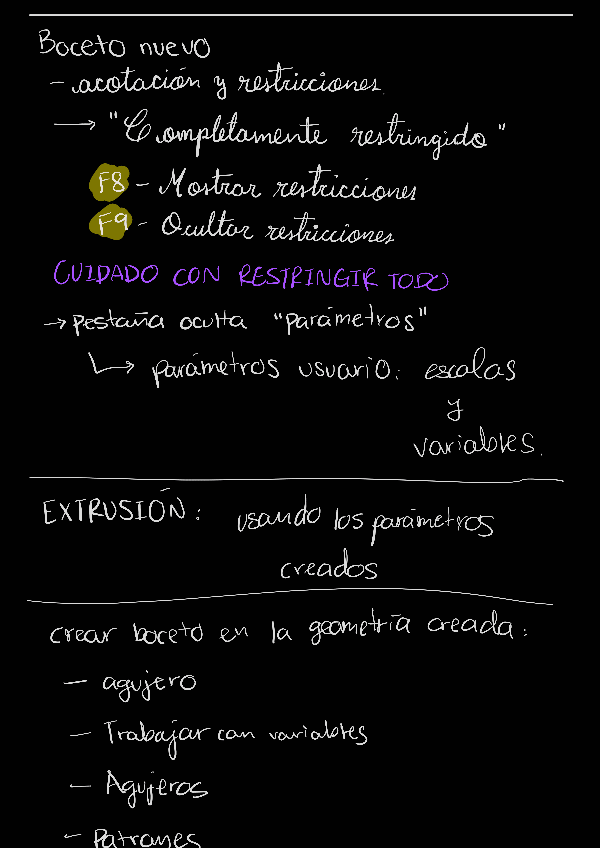 Boceto nuevo
- acotación y restricciones.
→ "Completamente restringido"
F8 - Mostrar restricciones
F9 - Ocultar restricciones
CUIDADO CON RESTRINGIR TODO
→ pestaña oculta "parámetros"
↳ parámetros usuario: escalas
y
variables.
EXTRUSIÓN: usando los parámetros
creados
crear boceto en la geometría creada:
- agujero
- Trabajar con variables
- Agujeros
- Patrones